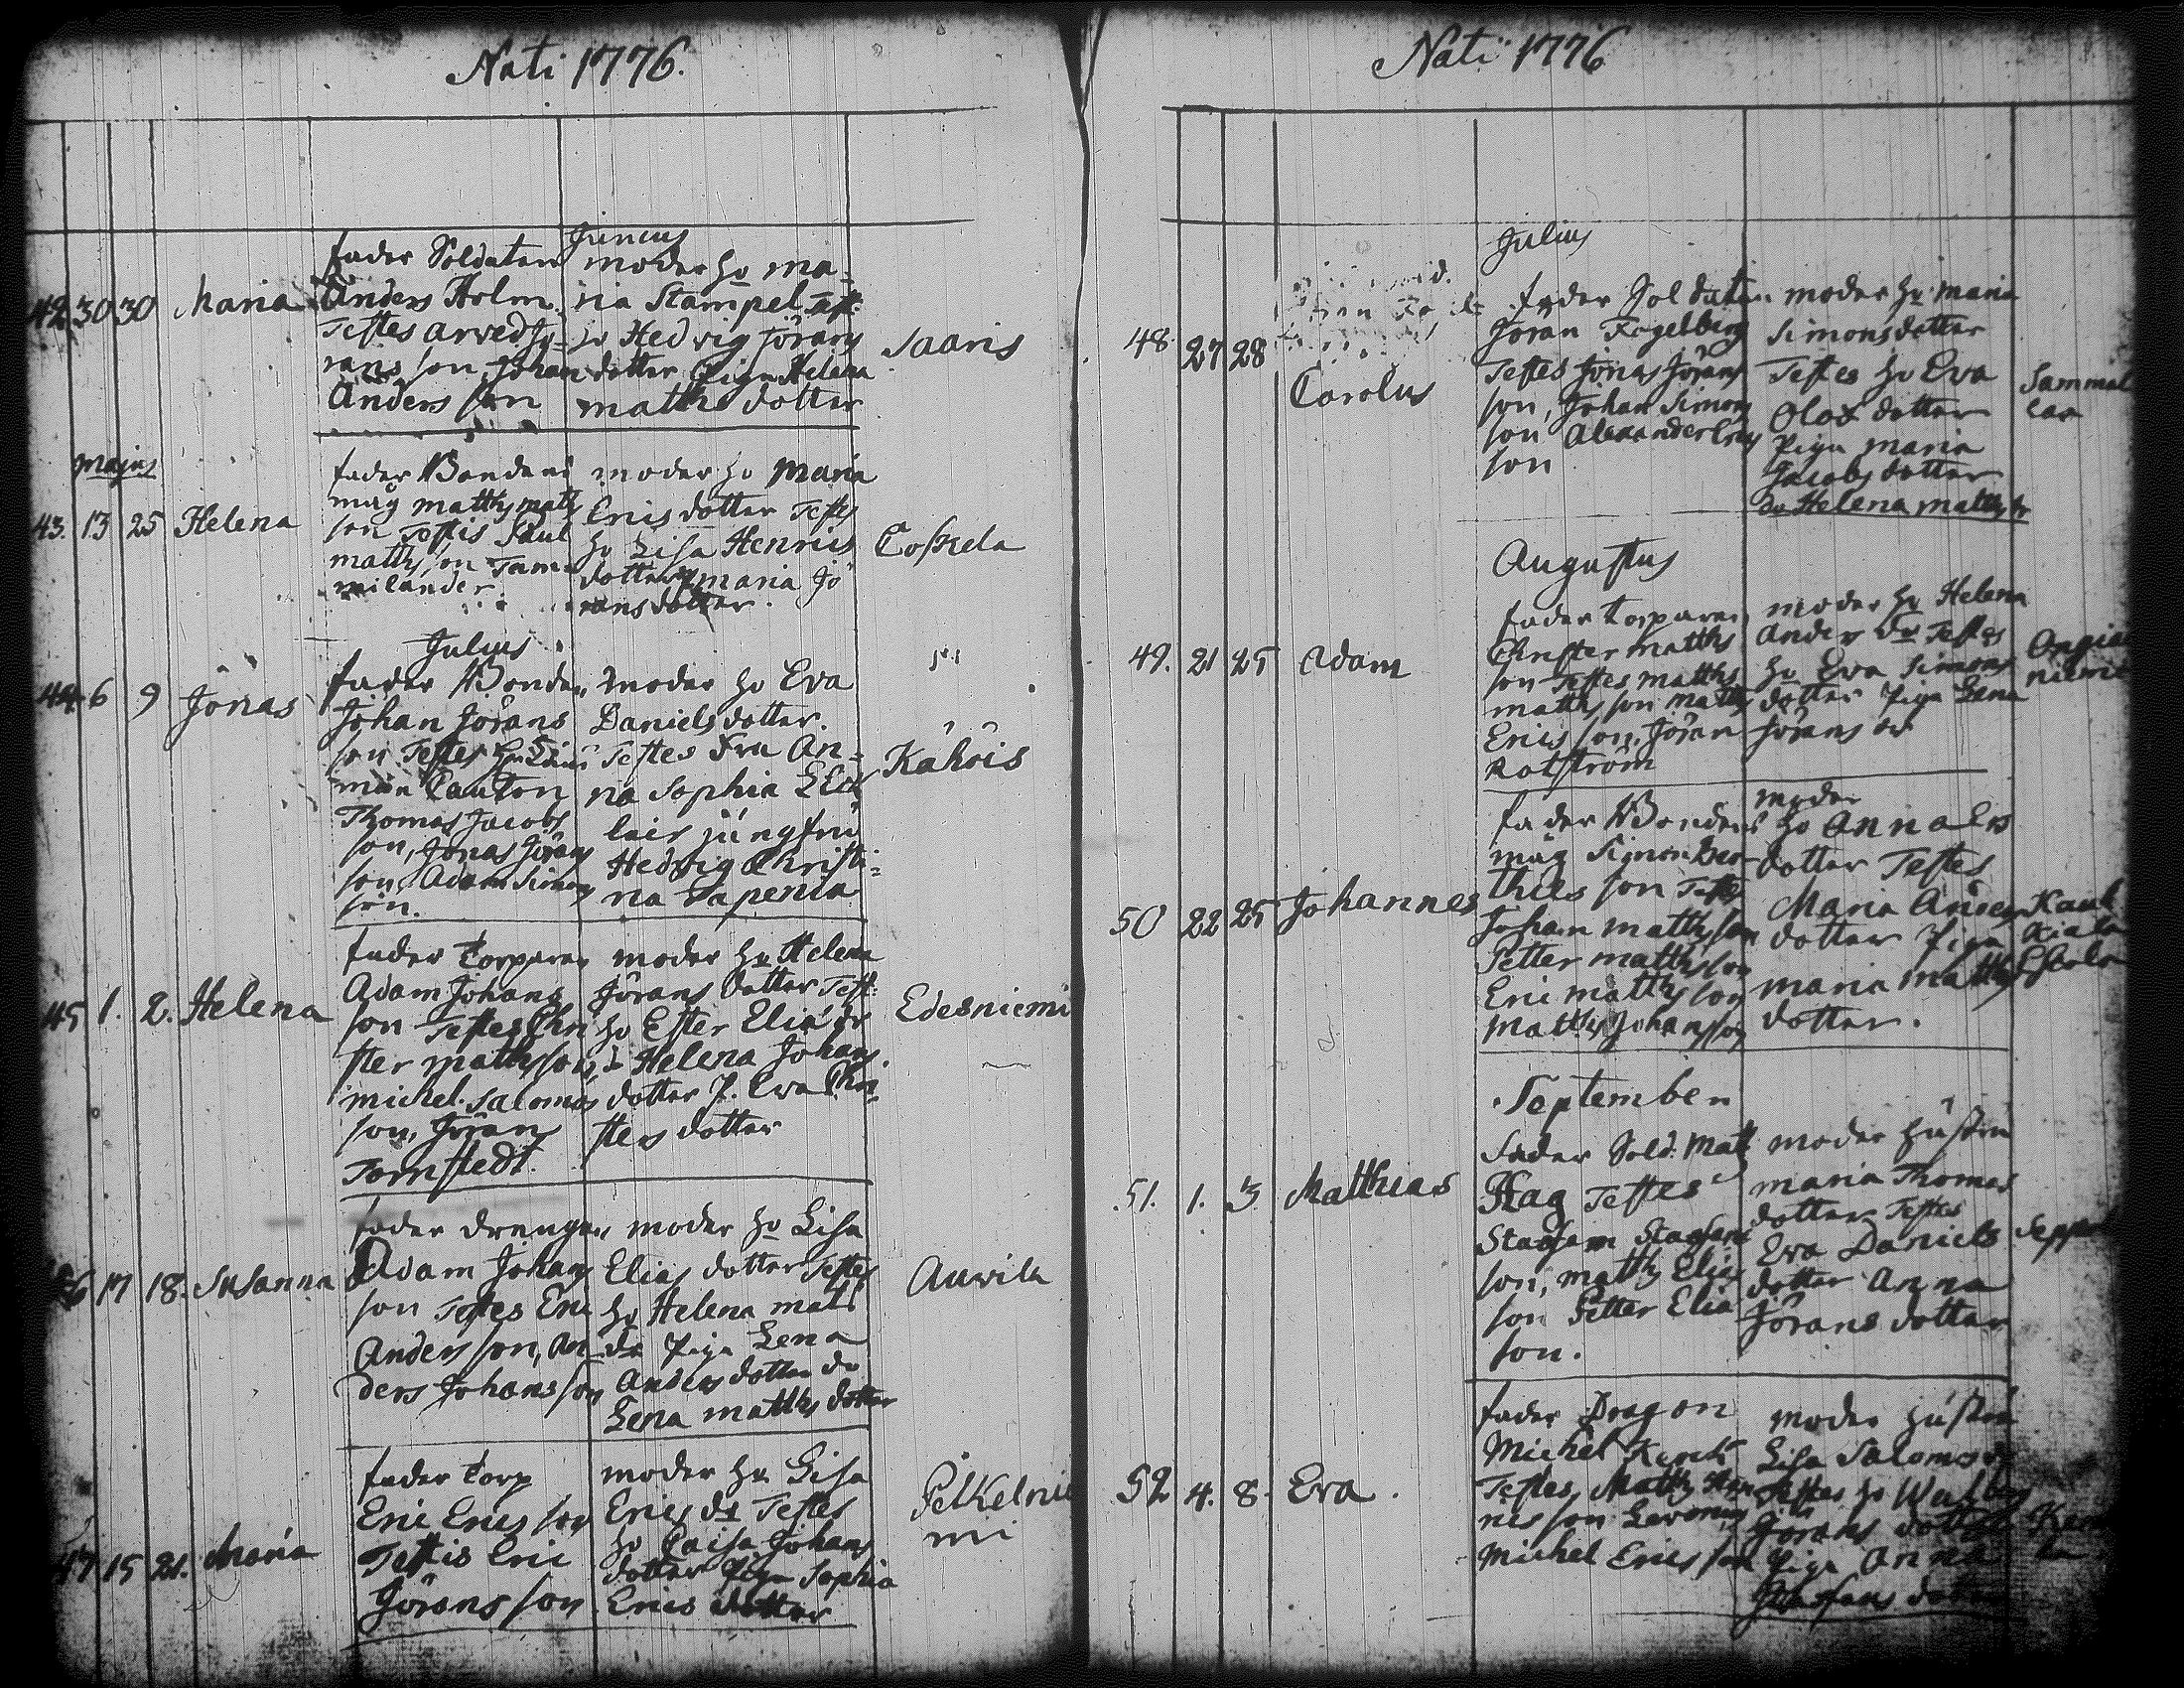 Nati 1776.
Junius
42 30 30 Maria
fader Soldaten
Anders Holm.
Testes Arved Jö-
rans son, Johan
Anders son
moder hu Ma-
ria Stampel Test:
hu Hedvig Jörans
dotter Piga Helena
matths dotter
Saaris
Majus
43. 13 25 Helena
fader Bondens
måg matths matths
son Testis Paul
matths son Tam-
milander.
moder hu Maria
Erics dotter Testes
hu Lisa Henrics
dotter maria Jö
rans dotter.
Coskela
Julius
44 6 9 Jönas
fader Bonden
Johan Jörans
son Testes
Thomas Jacobs
son, Jonas Jörans
son, Adam Simons
son.
moder hu Eva
Daniels dotter.
Testes Fru An-
na Sophia
jungfru
Hedvig Christi-
na
Kåhöis
45 1. 2. Helena
fader Torparen
Adam Johans
son Testes Chri
ster matths son,
michel Salomos
son, Jöran
Törnstedt.
moder hu Helena
Jörans dotter Test:
hu Ester Elia dr
Helena Johans
dotter P. Eva Chri-
sters dotter
Edesniemi
46 17 18. Susanna
fader drengen
Adam Johans
son Testes Eric
Anders son, An-
ders Johans son
moder hu Lisa
Elias dotter Testes
hu Helena mats
dr Piga Lena
Anders dotter do
Lena matths dotter
Auvila
47 15 21. Maria
fader Torp
Eric Erics son
Testis Eric
Jörans son
moder hu Lisa
Erics dr Testes
hu Caisa Johans
dotter Piga Sophia
Erics dotter
Pelkelnie
mi
Nati 1776
Julius
48. 27 28
Carolus
fader Soldaten
Jöran Fogelberg
Testes Jonas Jörans
son, Johan Simons
son Alexander Erics
son
moder hu Maria
Simonsdotter
Testes hu Eva
Olofs dotter
Piga Maria
Jacobs dotter
do Helena matths dr
Sammal
Augustus
49. 21 25 Adam
fader Torparen
Christer matths
son Testes matths
matths son matths
Erics son, Jöran
Rotström
moder hu Helena
Anders dr Testes
hu Eva Simons
dotter Piga Lena
Jörans dr
niemi
50 22 25 Johannes
fader Bondens
måg Simon
son Testes
Johan matths son
Petter matths son
Eric matths son
Matths Johans son
moder
hu Anna Ers
dotter Testes
Maria Anders
dotter Piga
maria matths
dotter.
September
51. 1. 3. Matthias
fader Sold. Matt
Hag Testes
Staffan Staffans
son, matths Elias
son Petter Elia
son.
moder hustru
maria Thomas
dotter Testes
Eva Daniels
dotter Anna
Jörans dotter
52 4. 8. Eva.
fader Dragon
Michel
Testes, Matths Hen
rics son
Michel Erics son
moder hustru
Lisa Salomos dr
Testes hu Walborg
Jörans dotter
Piga Anna
Staffans dotter